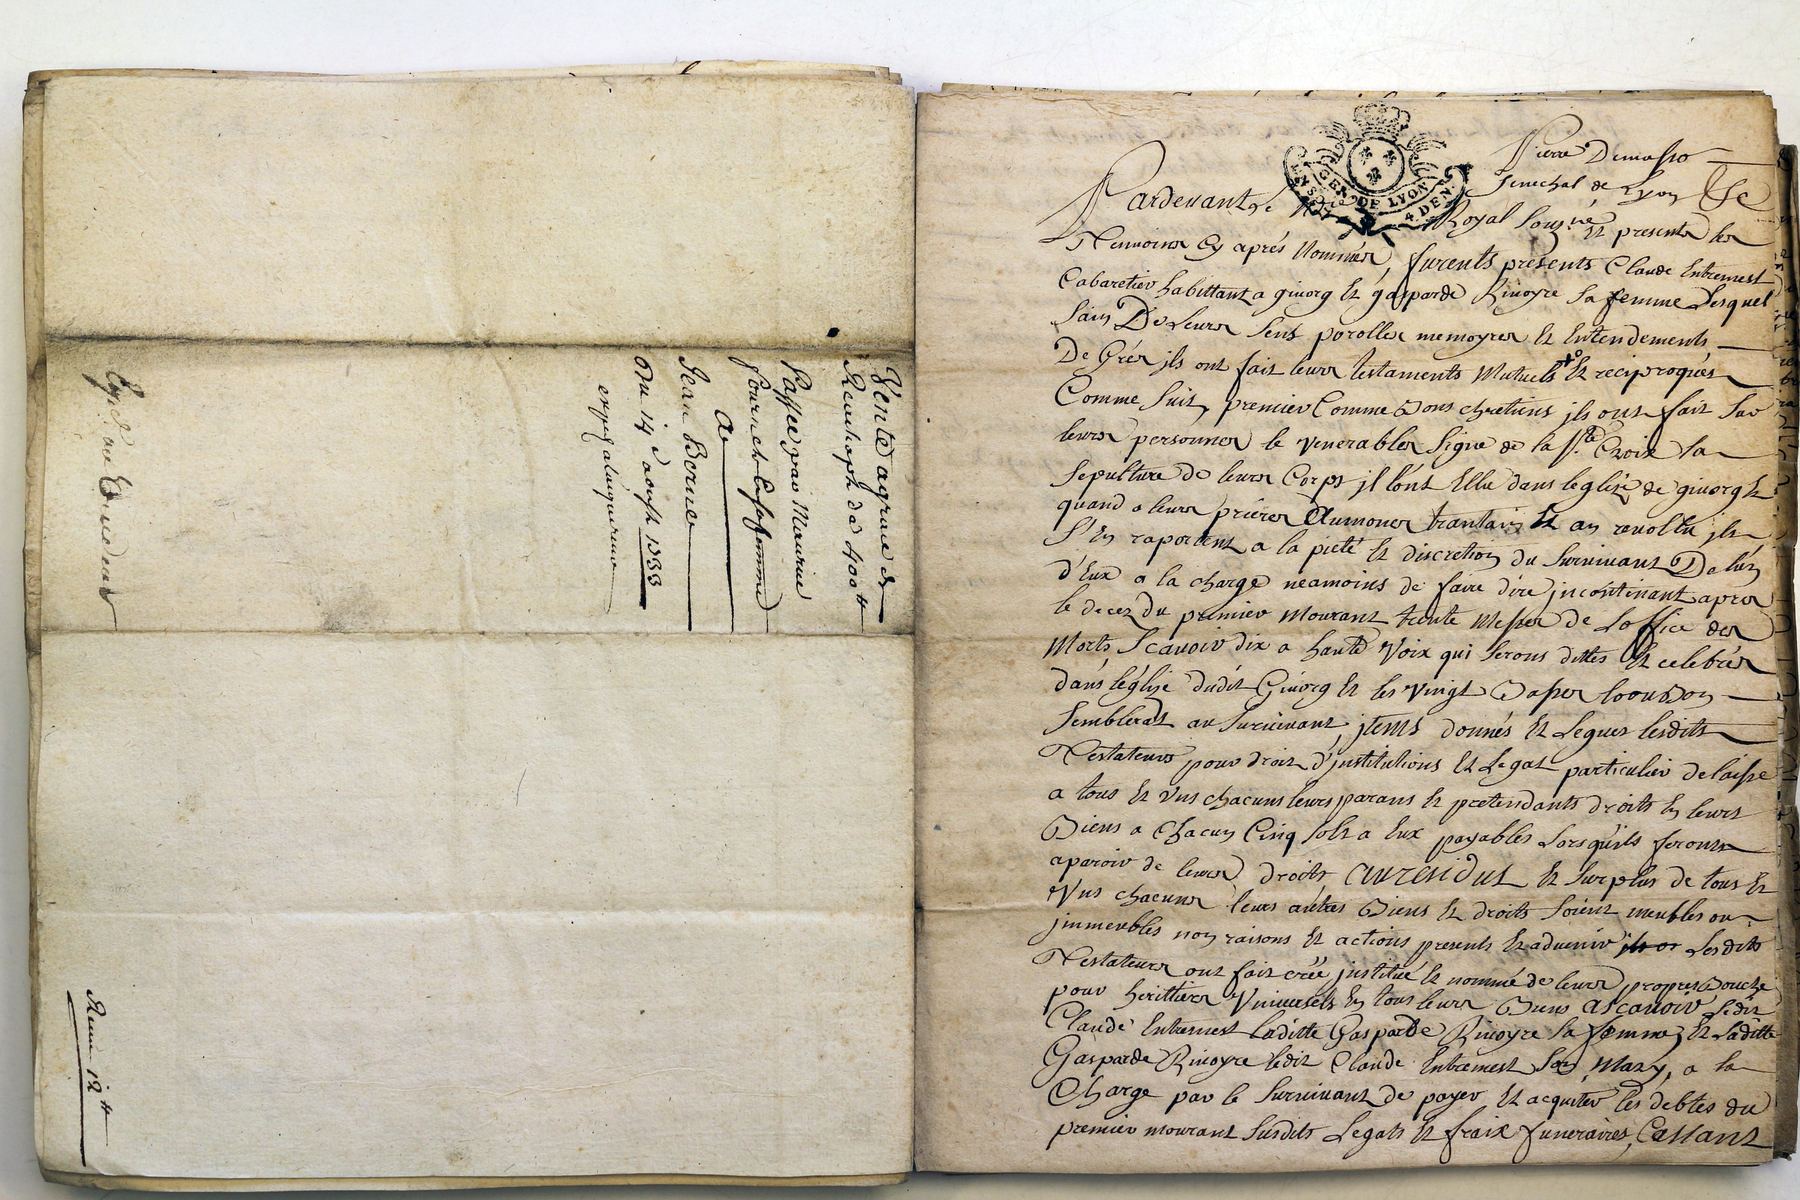 Vente a grace de
Reachapt de 400tt
Passée par Maurice
Fournel & sa femme
A
Jean Berne
Du 14 d'aoust 1333
Exp.d
Reçu 12tt
GEN. DE LYON
4. DEN.
Pierre Demasso
Senechal de Lyon &c
Pardevant le Nre Royal sousné Et presents les
Temoins Cy aprés Nommés, furents présents Claude Entremest
Cabaretier habittant a givorg Et gasparde Rivoyre sa femme Lesquel
sains De Leurs sens parolles memoyres Et Entendements
De Grés jls ont fait leurs testaments Mutuels Et reciproqués
Comme suit, premier Comme Bons chretiens jls ont fait sur
leurs personnes le venerables signe de la Ste Croix la
sepulture de leurs Corps jl l'ont Ellu dans leglise de givorg Et
quand a leurs prieres Aumones trantains Et an revollu jls
s'En raportent a la pieté Et discretion du survivant De lún
d'Eux a la charge neamoins de faire dire jncontinant apres
le decez du premier mourant trente Messes de Loffice des
Morts, Scavoir dix a haute Voix qui serons dittes Et celebrés
dans léglise dudit Givorg Et les vingt Basses loou Bon
semblerat au survivant, jtems donnés Et Legues lesdits
Testateurs pour droit d'jnstitutions Et Legat particulier delaisse
a tous Et vns chacuns leurs parans Et pretendants droits En leurs
Biens a chacun Cinq sols a Eux payables Lorsquils ferons
aparoir de leurs droits auresidus Et surplus de tous Et
Vns chacuns leurs autres Biens Et droits soient meubles ou
jmmeubles noms raisons Et actions presents Et advenir Lesdits
Testateurs ont fait créé jnstitué Et nommé de leurs propres Bouche
pour herittiers Vniversels En tous leurs Biens ascavoir Ledit
Claude Entremest Laditte Gasparde Rivoyre sa femme, Et Laditte
Gasparde Rivoyre ledit Claude Entremest son Mary, a la
Charge par le survivant de payer Et acquiter les debtes du
premier mourant susdits Legats Et fraix funeraires, Cassant